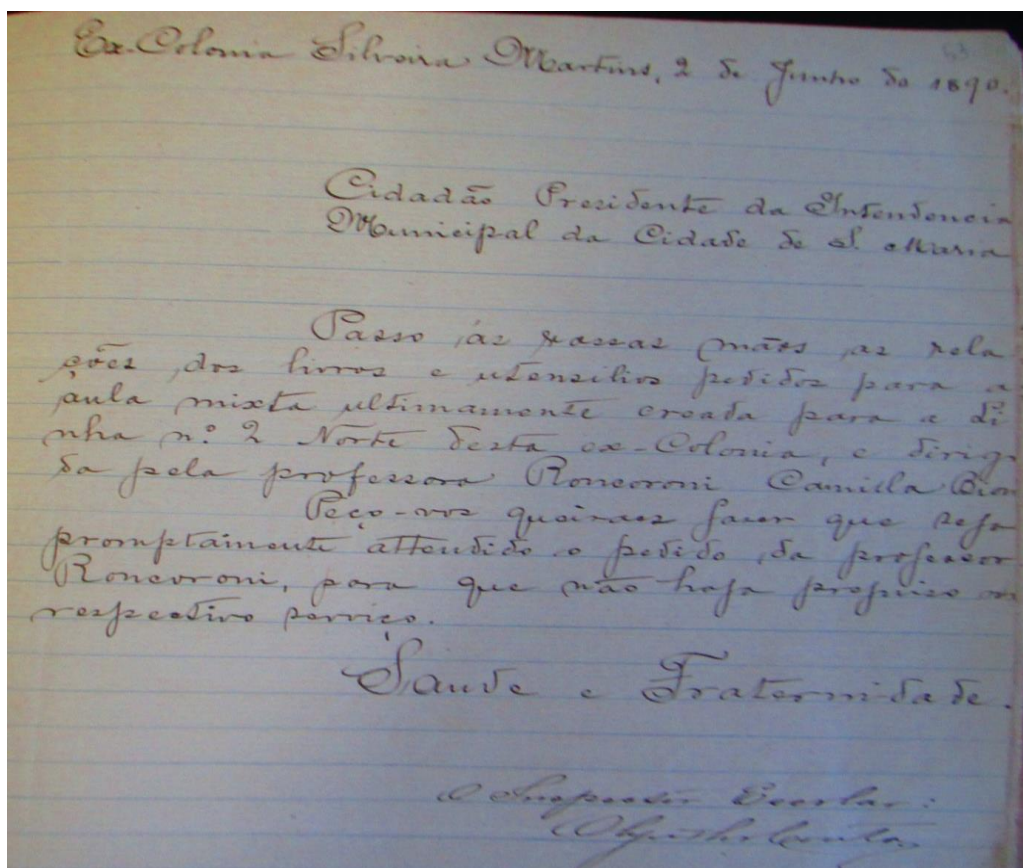 Ex-Colonia Silveira Martins, 2 de Junho de 1890.
Cidadão Presidente da Intendencia
Municipal da Cidade de S. Maria
Passo ás vossas mãos as rela
ções dos livros e utensilios pedidos para a
aula mixta ultimamente creada para a Li
nha n.º 2 Norte desta ex-Colonia, e dirigi
da pela professora Roncoroni Camilla
Peço-vos queiraes fazer que seja
promptamente attendido o pedido da professor
Roncoroni, para que não haja prejuizo n
respectivo serviço.
Saude e Fraternidade.
O Inspector Escolar: